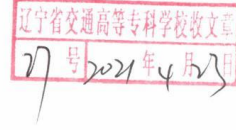 辽宁省交通高等专科学校收文章
27号2021年4月23日